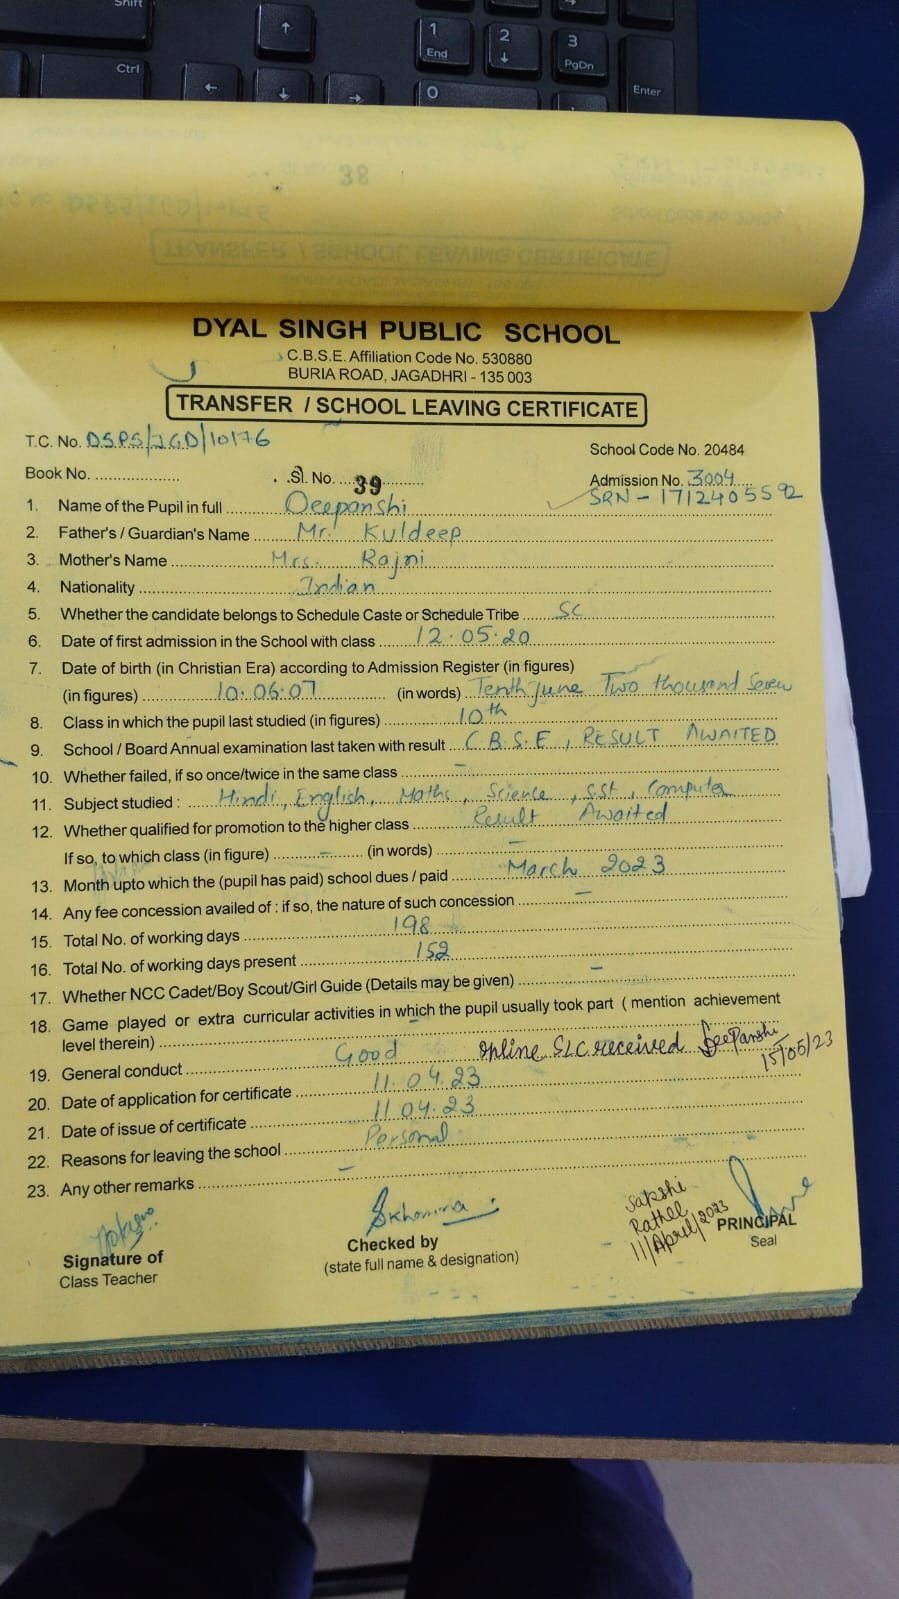 Shift
Ctrl
1
End
2
3
PgDn
0
Enter
38
TRANSFER / SCHOOL LEAVING CERTIFICATE
DYAL SINGH PUBLIC SCHOOL
C.B.S.E. Affiliation Code No. 530880
BURIA ROAD, JAGADHRI - 135 003
TRANSFER / SCHOOL LEAVING CERTIFICATE
T.C. No. DSPS/JGD/10176
School Code No. 20484
Book No. .................... Sl. No. 39 Admission No. 3004
SRN - 1712405592
1. Name of the Pupil in full ........ Deepanshi
2. Father's / Guardian's Name ........ Mr. Kuldeep
3. Mother's Name ........ Mrs. Rajni
4. Nationality ........ Indian
5. Whether the candidate belongs to Schedule Caste or Schedule Tribe ...... SC
6. Date of first admission in the School with class ...... 12.05.20
7. Date of birth (in Christian Era) according to Admission Register (in figures)
(in figures) ........ 10.06.07 ........ (in words) Tenth June Two thousand Seven
8. Class in which the pupil last studied (in figures) ........ 10th
9. School / Board Annual examination last taken with result ... C.B.S.E, RESULT AWAITED
10. Whether failed, if so once/twice in the same class ........ -
11. Subject studied : ...... Hindi, English, Maths, Science, S.St, Computer
12. Whether qualified for promotion to the higher class ........ Result Awaited
If so, to which class (in figure) ........ - ........ (in words) ........ -
13. Month upto which the (pupil has paid) school dues / paid ........ March 2023
14. Any fee concession availed of : if so, the nature of such concession ........ -
15. Total No. of working days ........ 198
16. Total No. of working days present ........ 152
17. Whether NCC Cadet/Boy Scout/Girl Guide (Details may be given) ........ -
18. Game played or extra curricular activities in which the pupil usually took part ( mention achievement
level therein) ........ -
19. General conduct ........ Good
Online SLC received Deepanshi
15/05/23
20. Date of application for certificate ........ 11.04.23
21. Date of issue of certificate ........ 11.04.23
22. Reasons for leaving the school ........ Personal
23. Any other remarks ........ -
Sakshi
Rathee
11/April/2023
Signature of
Class Teacher
Checked by
(state full name & designation)
PRINCIPAL
Seal